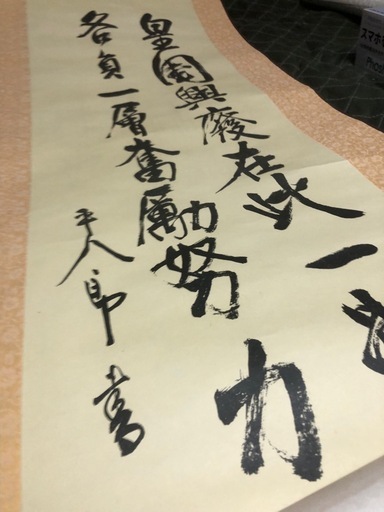 皇國興廢在此一
各員一層奮勵努力
平八郎書
スマホ